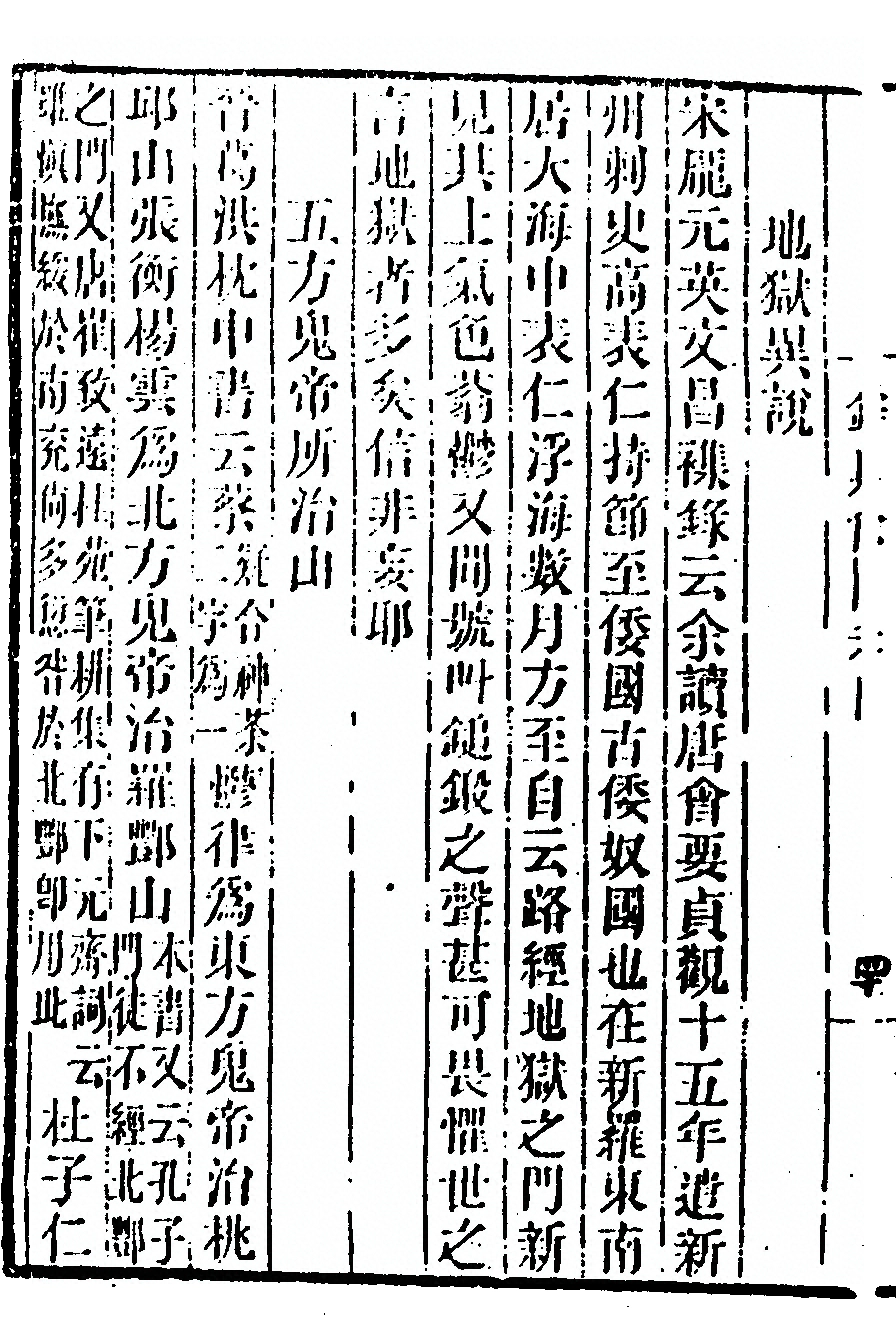 地獄異說
宋龐元英文昌襍錄云余讀唐會要貞觀十五年遣新
州刺史高表仁持節至倭國古倭奴國也在新羅東南
居大海中表仁浮海數月方至自云路經地獄之門新
見其上氣色蓊鬱又聞號叫鎚鍛之聲甚可畏懼世之
言地獄者多矣信非妄耶
五方鬼帝所治山
晉葛洪枕中書云蔡疑合神荼二字為一鬱律為東方鬼帝治桃
邱山張衡楊雲為北方鬼帝治羅酆山本書又云孔子門徒不經北酆
之門又唐崔致遠桂苑筆耕集有下元齋詞云雖慎撫綏於南兗尚多怨咎於北酆卽用此杜子仁
四十